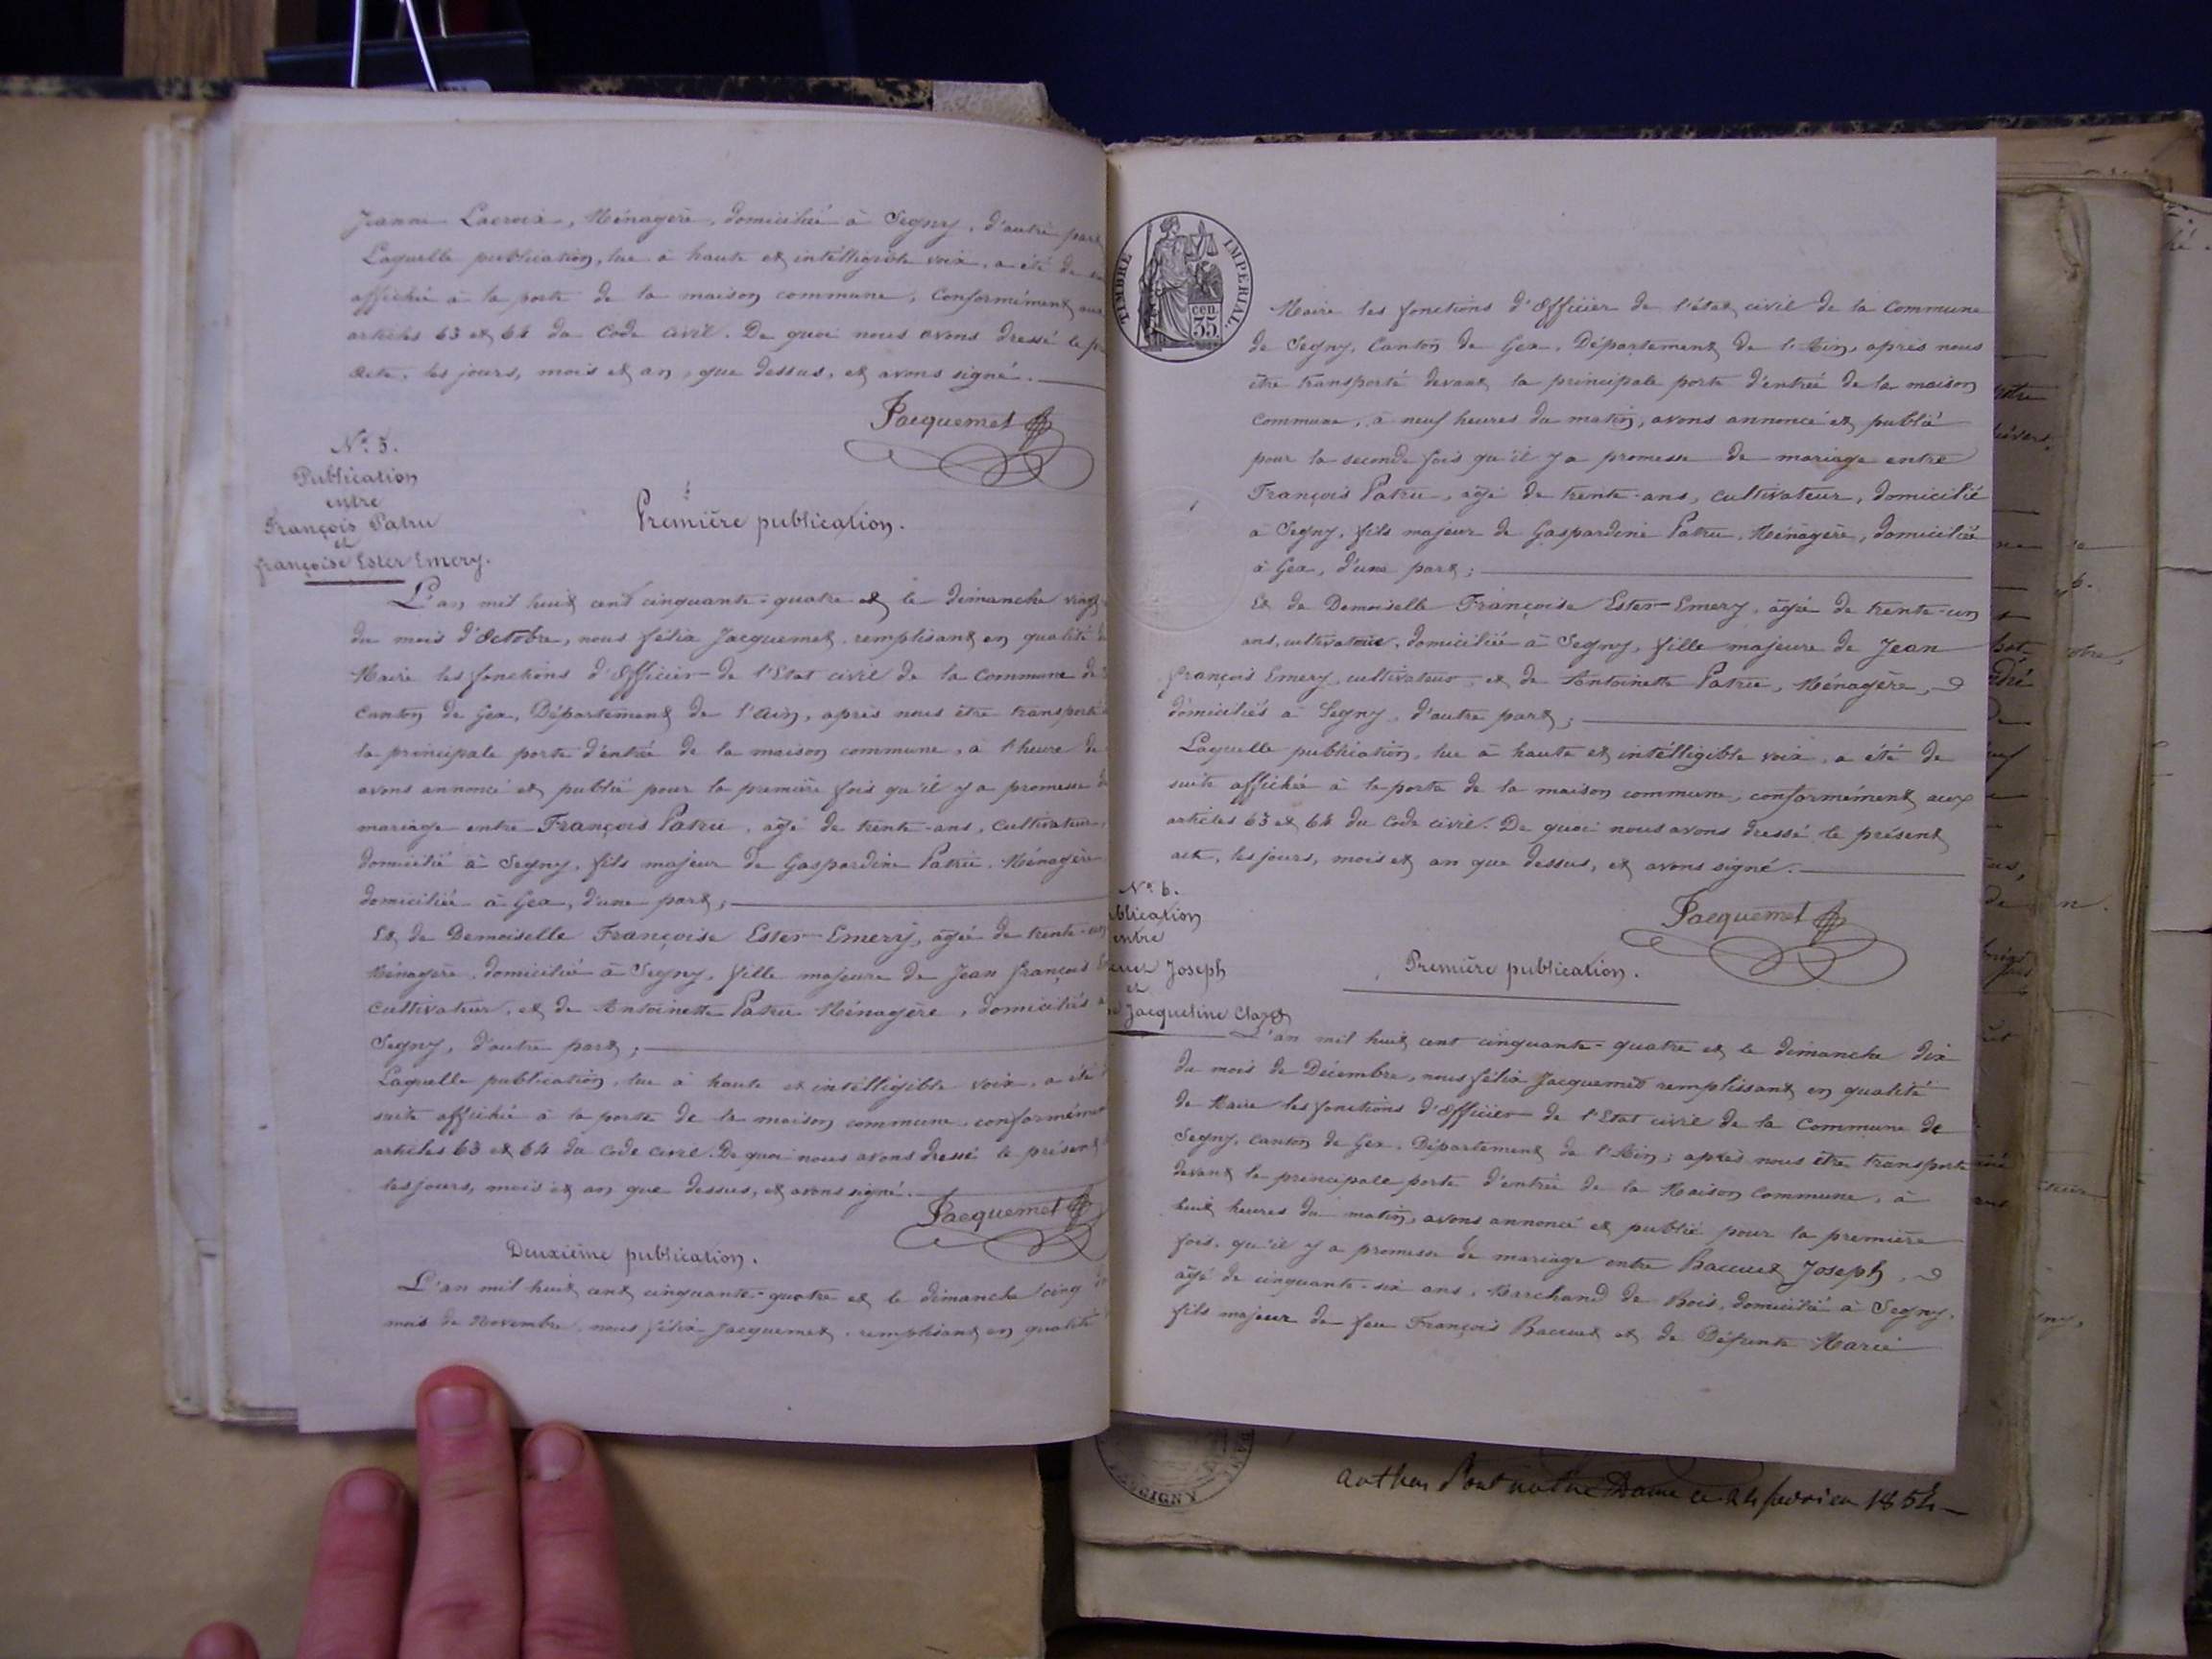 Jeanne Lacroix, Ménagère, domiciliée à Segny, d'autre part
Laquelle publication, lue à haute et intélligible voix, a été de
affichée à la porte de la maison commune, Conformément aux
articles 63 et 64 du Code civil. De quoi nous avons dressé le
acte, les jours, mois et an, que dessus, et avons signé.
Jacquemet
N.º 5.
Publication
entre
François Patru
et
françoise Ester Emery.
Première publication.
L'an mil huit cent cinquante-quatre et le dimanche vingt
du mois d'Octobre, nous félix Jacquemet, remplisant en qualité de
Maire les fonctions d'Officier de l'Etat civil de la Commune de
Canton de Gex, Département de l'Ain, après nous être transporté
la principale porte d'entrée de la maison commune, à l'heure de
avons annoncé et publié pour la première fois qu'il y a promesse de
mariage entre François Patru, agé de trente-ans, Cultivateur,
domicilié à Segny, fils majeur de Gaspardine Patru, Ménagère
domiciliée à Gex, d'une part;
Et de Demoiselle Françoise Ester Emery, agée de trente-un
Ménagère, domiciliée à Segny, fille majeure de Jean françois
Cultivateur, et de Antoinette Patru Ménagère, domiciliés à
Segny, d'autre part;
Laquelle publication, lue à haute et intélligible voix, a été
suite affichée à la porte de la maison commune, conformément
articles 63 et 64 du Code civil. De quoi nous avons dressé le présent
les jours, mois et an que dessus, et avons signé.
Jacquemet
Deuxième publication.
L'an mil huit cent cinquante-quatre et le dimanche cinq du
mois de Novembre, nous félix Jacquemet, remplisant en qualité
TIMBRE IMPERIAL.
cen.
35
Maire les fonctions d'Officier de l'état civil de la Commune
de Segny, Canton de Gex, Département de l'Ain, après nous
être transporté devant la principale porte d'entrée de la maison
Commune, à neuf heures du matin, avons annoncé et publié
pour la seconde fois qu'il y a promesse de mariage entre
François Patru, agé de trente-ans, Cultivateur, domicilié
à Segny, fils majeur de Gaspardine Patru, Ménagère, domiciliée
à Gex, d'une part;
Et de Demoiselle Françoise Ester Emery, agée de trente-un
ans, cultivatrice, domiciliée à Segny, fille majeure de Jean
françois Emery, cultivateur, et de Antoinette Patru, Ménagère,
domiciliés à Segny, d'autre part;
Laquelle publication, lue à haute et intélligible voix, a été de
suite affichée à la porte de la maison commune, conformément aux
articles 63 et 64 du Code civil. De quoi nous avons dressé le présent
acte, les jours, mois et an que dessus, et avons signé.
Jacquemet
N.º 6.
blication
entre
Joseph
et
Jacqueline Claret
Première publication.
L'an mil huit cent cinquante-quatre et le dimanche dix
du mois de Décembre, nous félix Jacquemet remplissant en qualité
de Maire les fonctions d'Officier de l'Etat civil de la Commune de
Segny, Canton de Gex, Département de l'Ain; après nous être transporté
devant la principale porte d'entrée de la Maison Commune, à
huit heures du matin, avons annoncé et publié pour la première
fois, qu'il y a promesse de mariage entre Baccuet Joseph,
âgé de cinquante-six ans, Marchand de Bois, domicilié à Segny,
fils majeur de feu François Baccuet et de Défunte Marie
notre Dame ce 24 février 1854